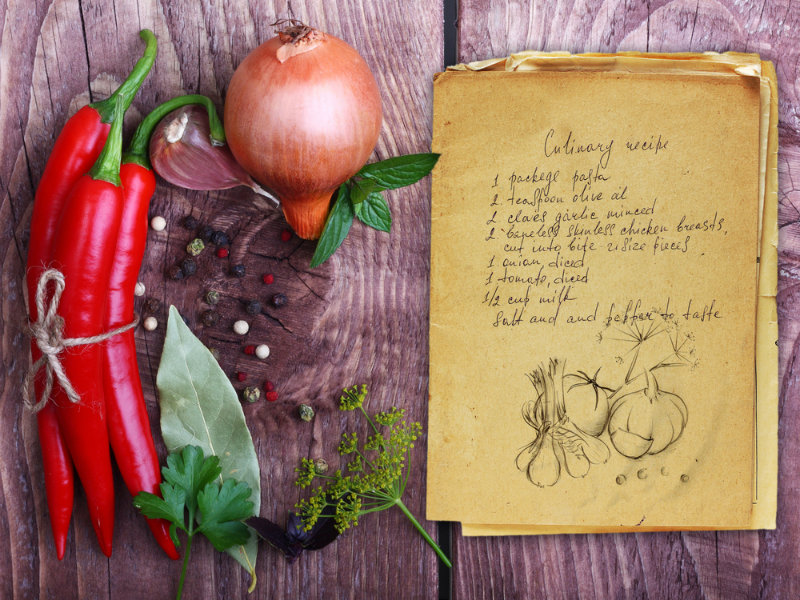 Culinary recipe
1 packege pasta
2 teaspoon olive oil
2 claves garlic minced
2 boneless skinless chicken breasts,
cut into bite-size pieces
1 onion, diced
1 tomato, diced
1/2 cup milk
Salt and and pepper to taste